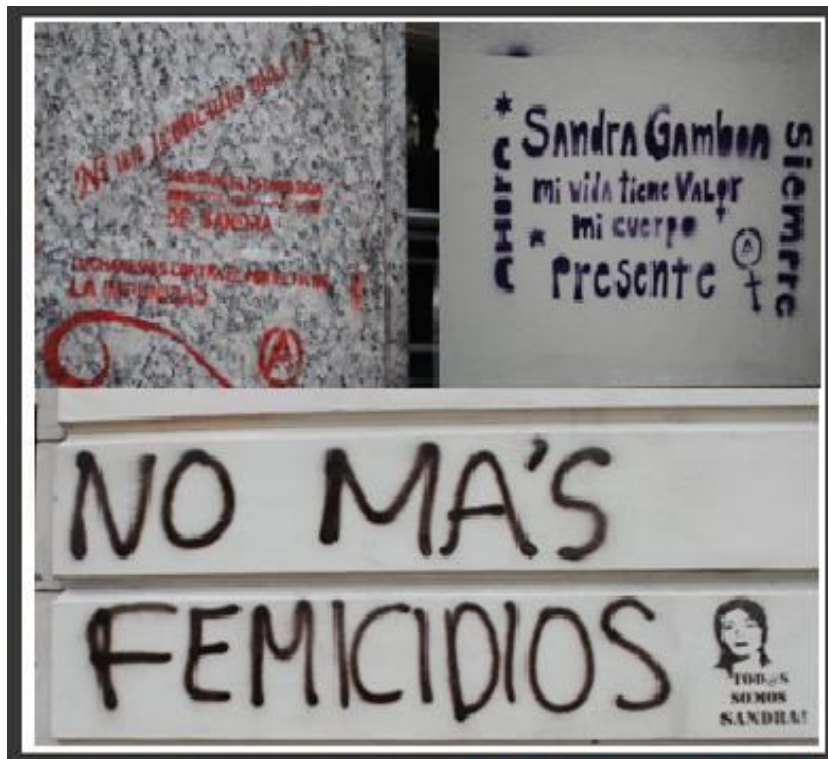 Ni un femicidio más
DE SANDRA
LUCHAREMOS CONTRA EL
LA IMPUNIDAD
A
AHORA
Sandra Gamboa
mi vida tiene VALOR
mi cuerpo
Presente
A
Siempre
NO MA'S
FEMICIDIOS
TOD@S
SOMOS
SANDRA!